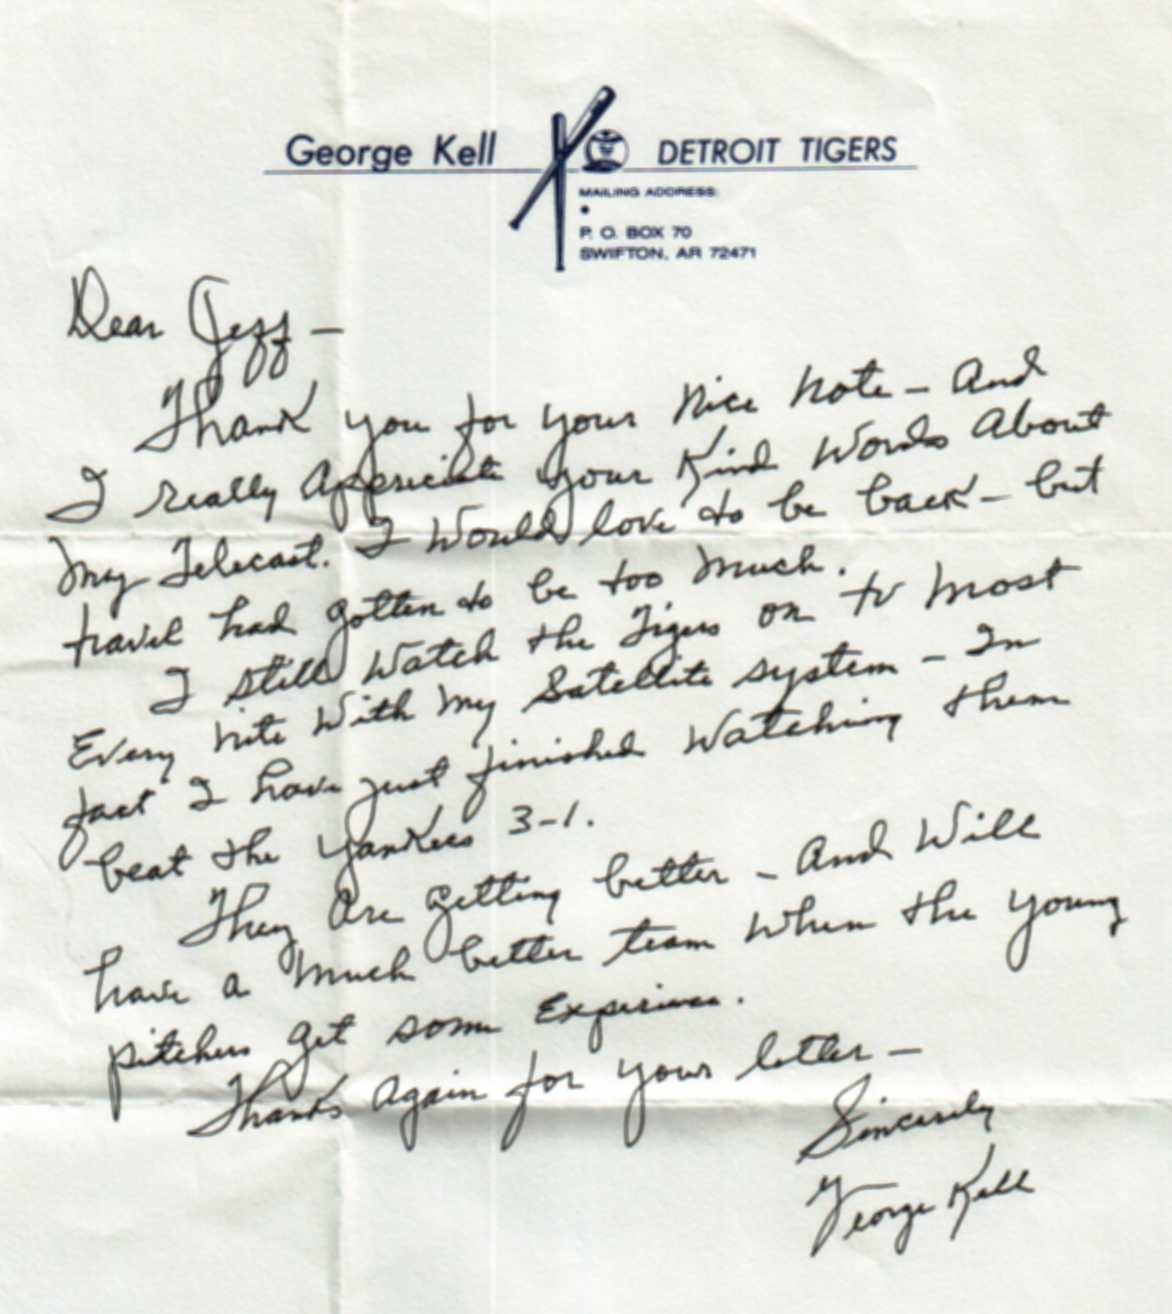 George Kell DETROIT TIGERS
MAILING ADDRESS:
P. O. BOX 70
SWIFTON, AR 72471
Dear Jeff –
Thank you for your nice note – And
I really Appericiate your Kind Words About
my Telecast. I Would love to be back – but
travel had gotten to be too much.
I still Watch the Tigers on tv most
Every nite With my Satellite system – In
fact I have just finished Watching them
beat the Yankees 3-1.
They Are getting better – And Will
have a much better team When the young
pitchers get some Experience.
Thanks Again for your letter –
Sincerely
George Kell